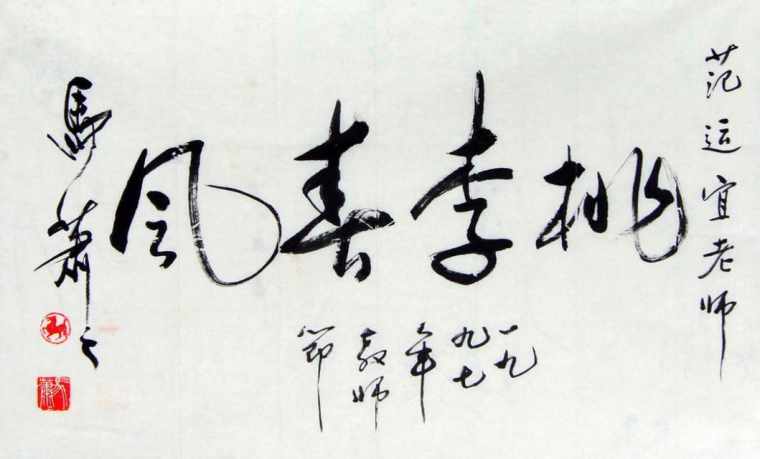 范运宜老师
桃李春风
一九
九七
年
教师
節
馬蕭萧